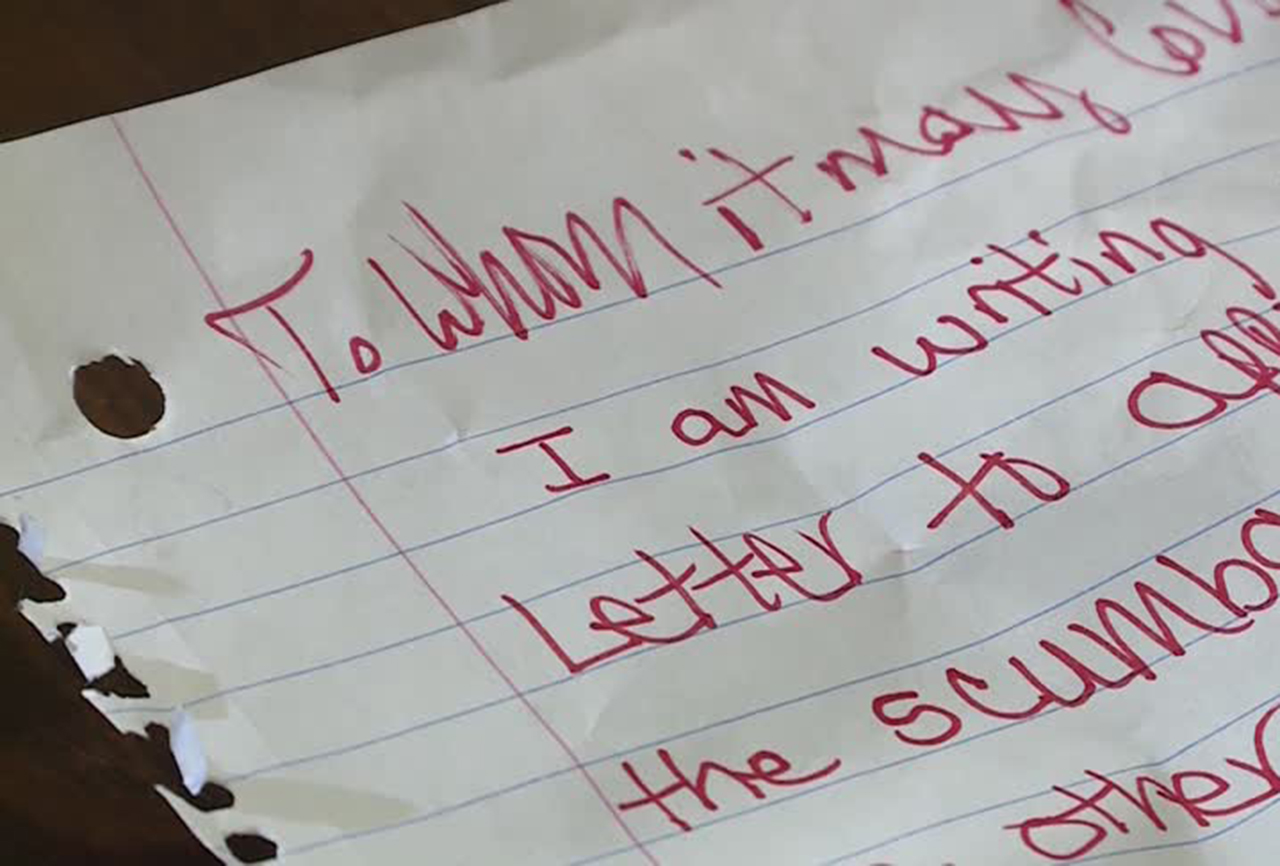 To Whom it may Con
I am writing
Letter to all
the scumba
other